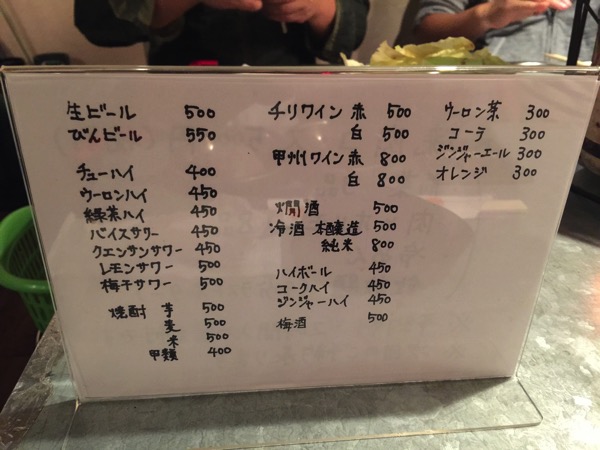 生ビール 500
びんビール 550
チューハイ 400
ウーロンハイ 450
緑茶ハイ 450
バイスサワー 450
クエンサンサワー 450
レモンサワー 500
梅干サワー 500
焼酎 芋 500
麦 500
米 500
甲類 400
チリワイン 赤 500
白 500
甲州ワイン 赤 800
白 800
燗酒 500
冷酒 本醸造 500
純米 800
ハイボール 450
コークハイ 450
ジンジャーハイ 450
梅酒 500
ウーロン茶 300
コーラ 300
ジンジャーエール 300
オレンジ 300